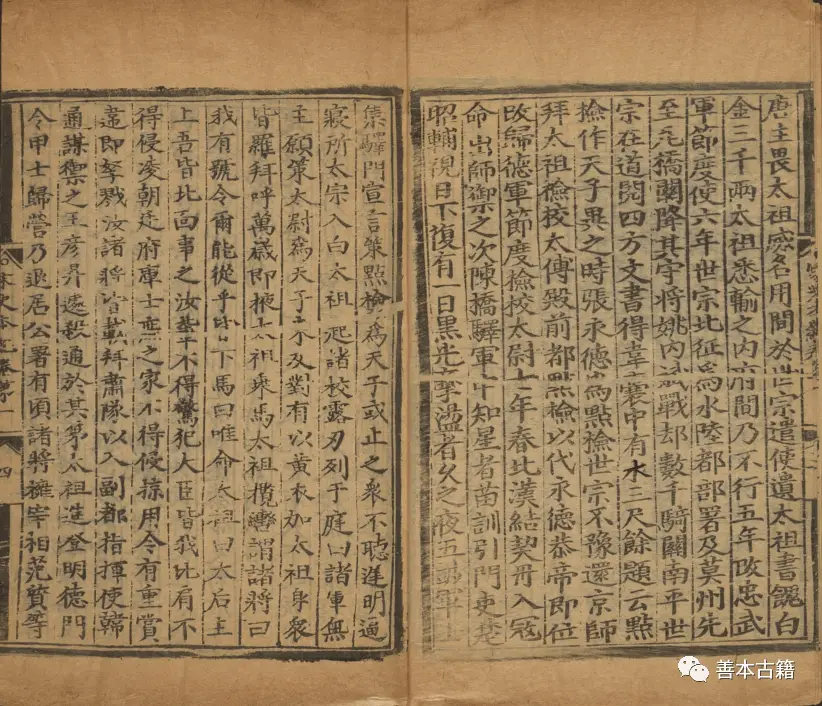 唐主畏太祖威名用間於世宗遣使遺太祖書餽白
金三千兩太祖悉輸之内府間乃不行五年改忠武
軍節度使六年世宗北征爲水陸都部署及莫州先
至瓦橋關降其守將姚内斌戰却數千騎關南平世
宗在道閱四方文書得韋囊中有木三尺餘題云點
檢作天子異之時張永德爲點檢世宗不豫還京師
拜太祖檢校太傅殿前都點檢以代永德恭帝即位
改歸德軍節度檢校太尉七年春北漢結契丹入冦
命出師禦之次陳橋驛軍中知星者苗訓引門吏楚
昭輔視日下復有一日黒光摩盪者久之夜五鼓軍士
集驛門宣言策點檢爲天子或止之衆不聽遲明逼
寢所太宗入白太祖起諸校露刃列于庭曰諸軍無
主願策太尉爲天子未及對有以黄衣加太祖身衆
皆羅拜呼萬歲即掖太祖乘馬太祖攬轡謂諸將曰
我有號令爾能從乎皆下馬曰唯命太祖曰太后主
上吾皆北面事之汝輩不得驚犯大臣皆我比肩不
得侵凌朝廷府庫士庶之家不得侵掠用令有重賞
違即孥戮汝諸將皆載拜肅隊以入副都指揮使韓
通謀禦之王彦昇遽殺通於其第太祖進登明德門
令甲士歸營乃退居公署有頃諸將擁宰相范質等
宋史本紀卷第一
四
善本古籍